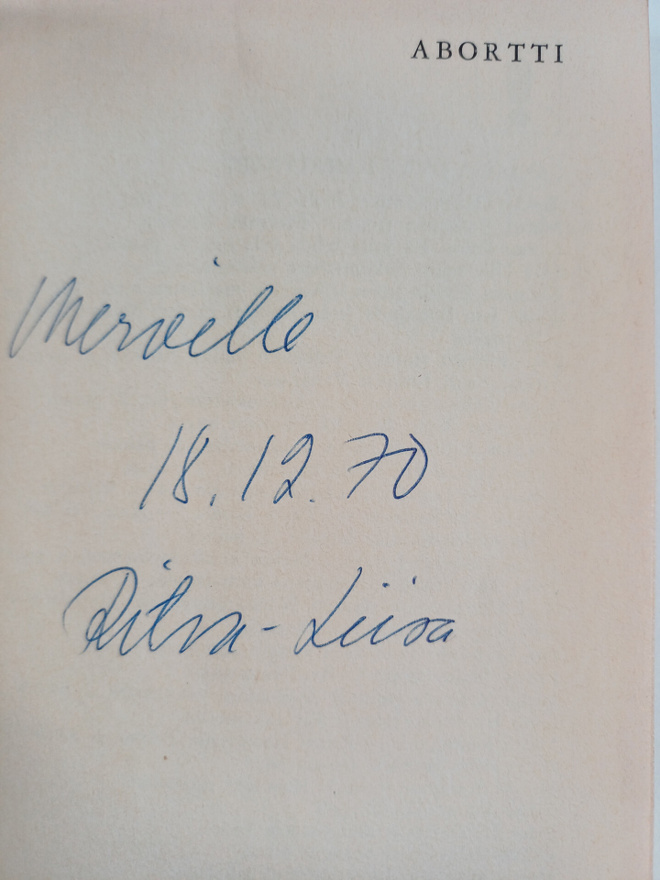 ABORTTI
Merville
18.12.70
Ritva-Liisa